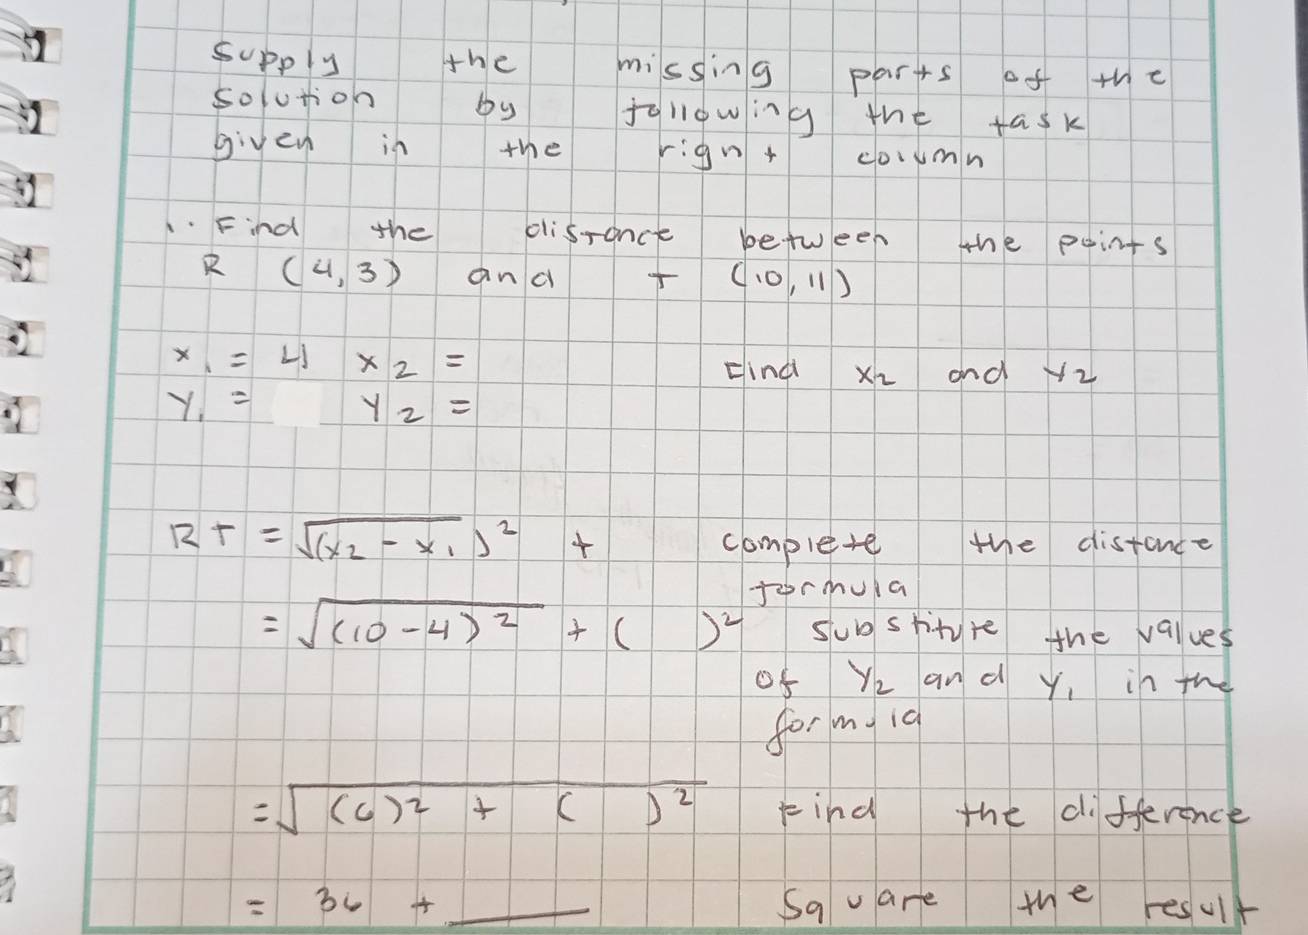 supply the missing parts of the
solution by following the task
given in the right column
1. Find the distance between the points
R (4,3) and T (10,11)
x₁ = 4 x₂ = Find x₂ and y₂
y₁ = y₂ =
RT = √(x₂ - x₁)² + complete the distance
formula
= √(10-4)² + ( )² substitute the values
of y₂ and y₁ in the
formula
= √(6)² + ( )² Find the difference
= 36 + ____ Square the result